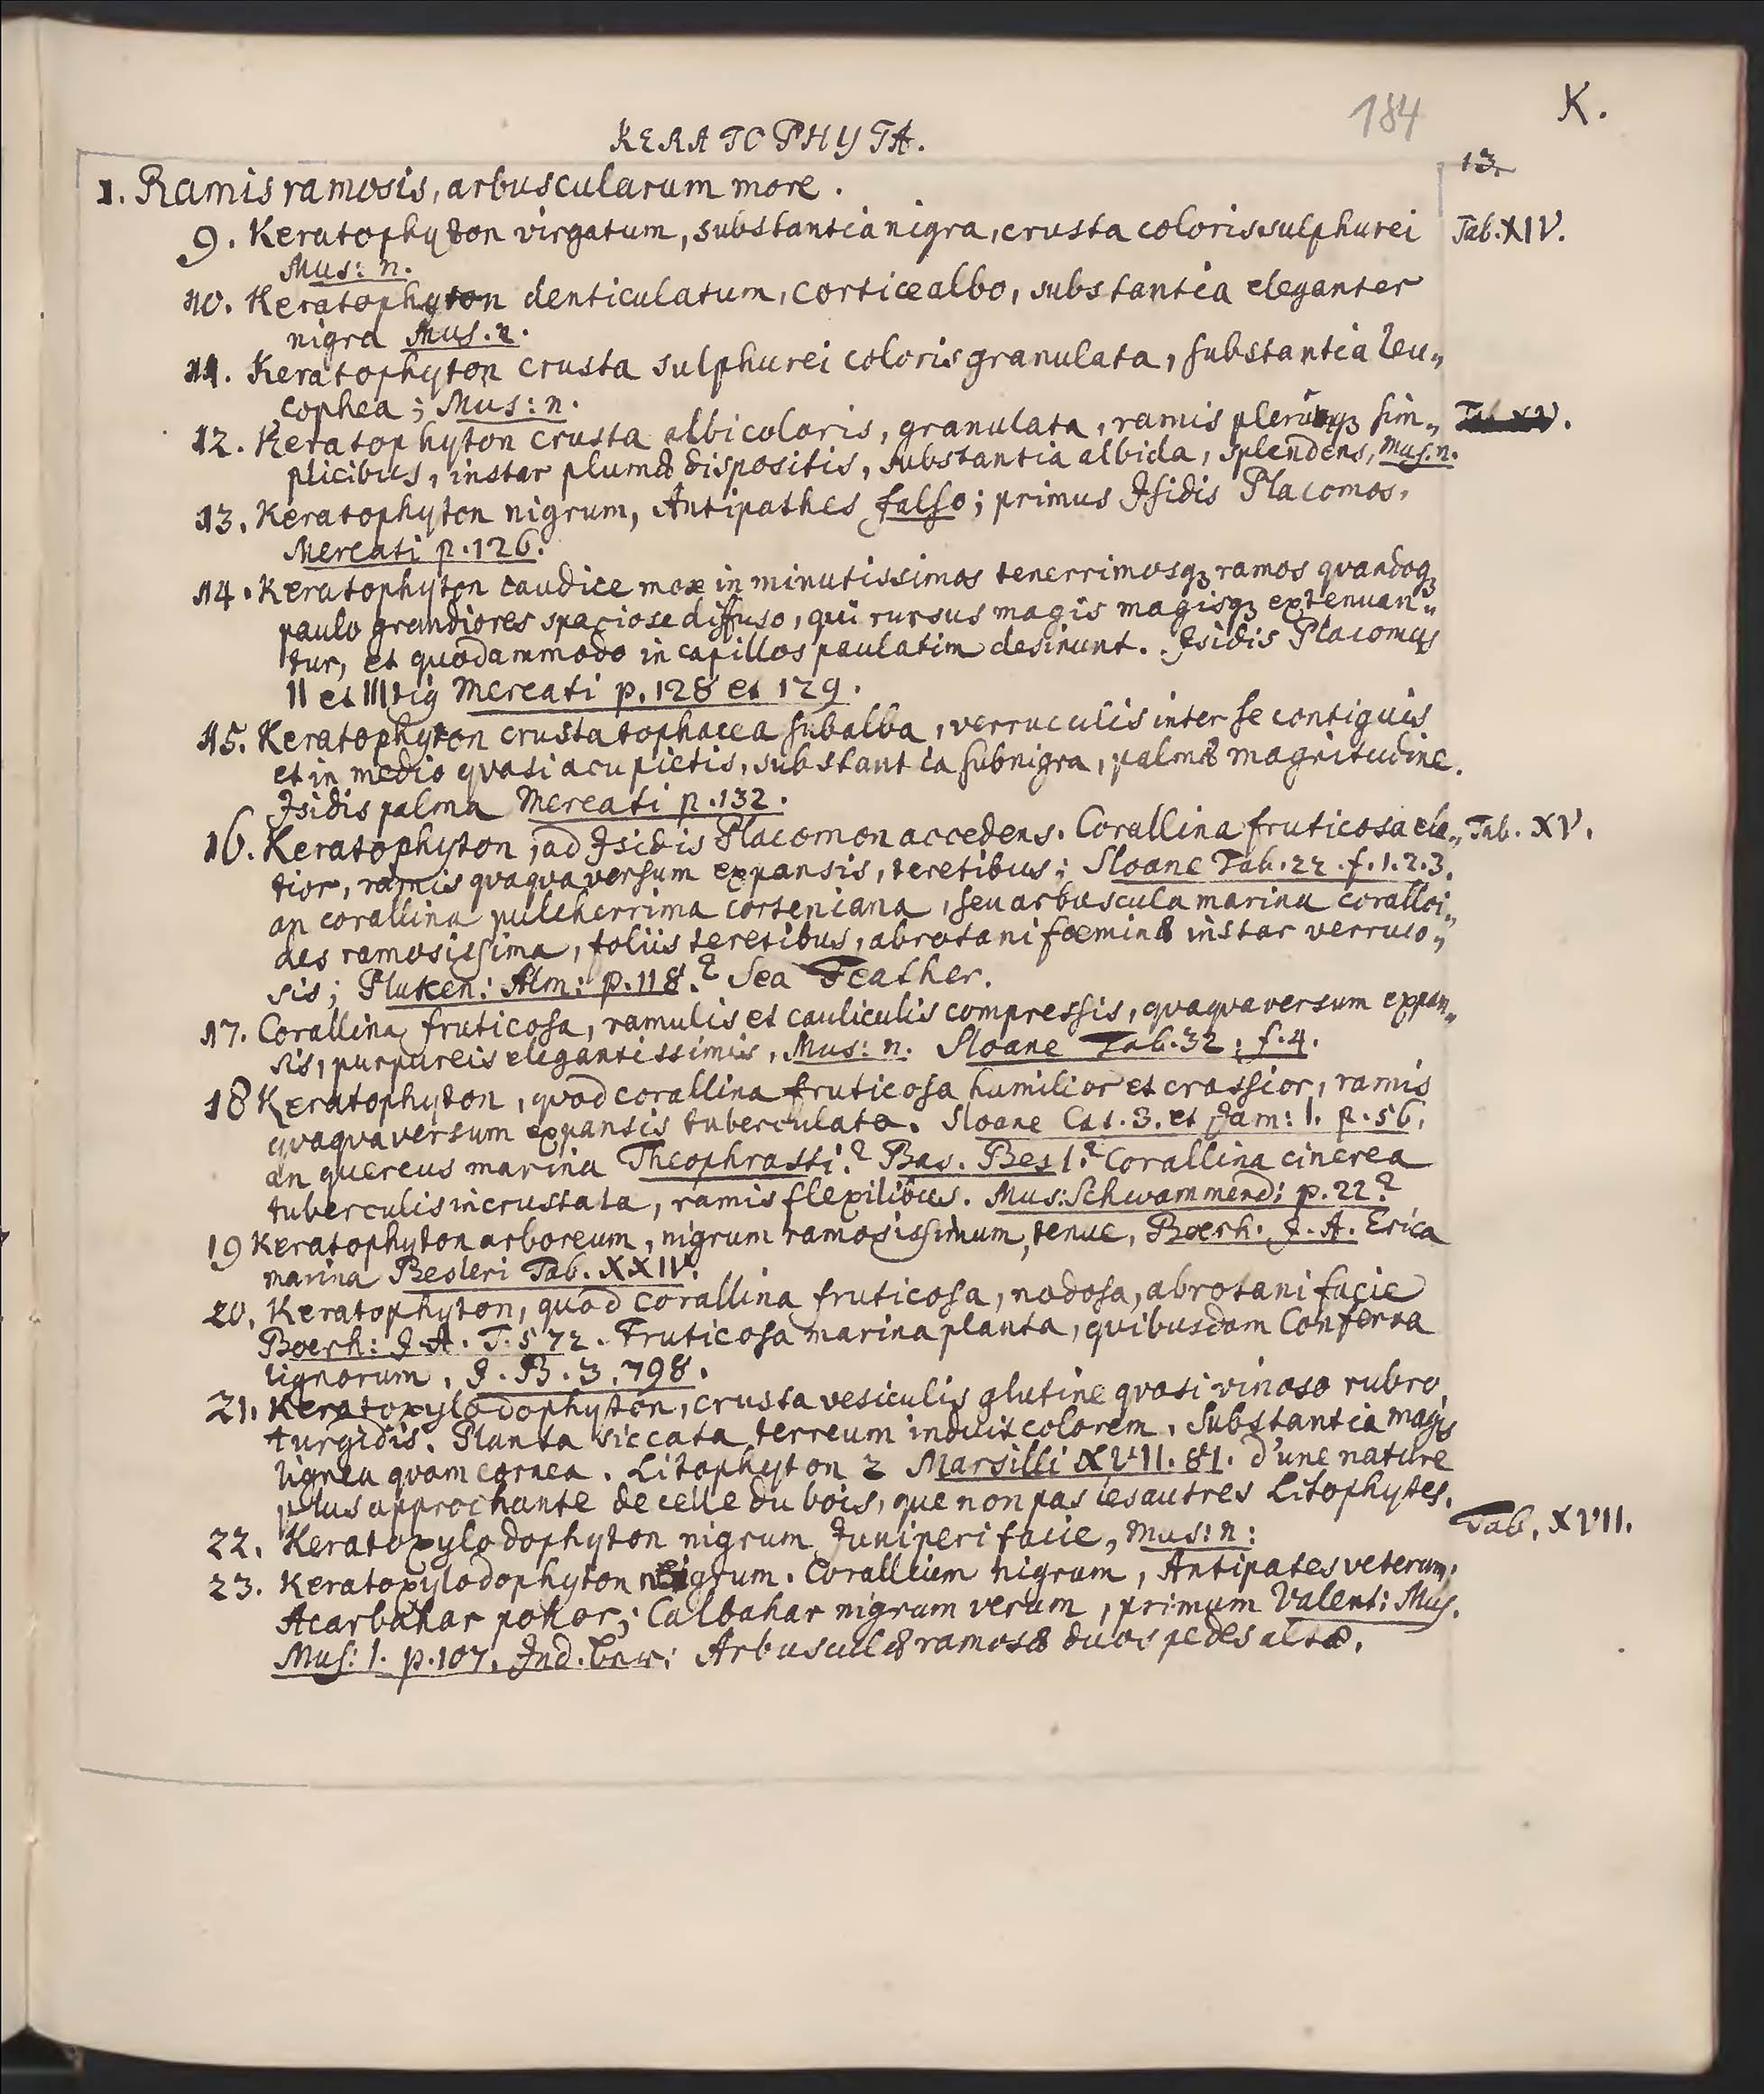 184
K.
KERATOPHYTA.
13.
1. Ramis ramosis, arbuscularum more.
9. Keratophyton virgatum, substantia nigra, crusta coloris sulphurei Tab. XIV.
Mus: n.
10. Keratophyton denticulatum, cortice albo, substantia eleganter
nigra Mus. n.
11. Keratophyton crusta sulphurei coloris granulata, substantia leu„
cophea; Mus: n.
12. Keratophyton crusta albi coloris, granulata, ramis plerumqꝫ sim„ Tab. XV.
plicibus, instar plumæ dispositis, substantia albida, splendens, Mus. n.
13. Keratophyton nigrum, Antipathes falso; primus Isidis Placomos.
Mercati p. 126.
14. Keratophyton caudice mox in minutissimos tenerrimosqꝫ ramos quandoqꝫ
paulo grandiores spaciose diffuso, qui rursus magis magisqꝫ extenuan„
tur, et quodammodo in capillos paulatim desinunt. Isidis Placomus
II et III tig Mercati p. 128 et 129.
15. Keratophyton crusta tophacea subalba, verruculis inter se contiguis
et in medio quasi acu pictis, substantia subnigra, palmæ magnitudine.
Isidis palma Mercati p. 132.
16. Keratophyton, ad Isidis Placomon accedens. Corallina fruticosa ela„ Tab. XV.
tior, ramis quaquaversum expansis, teretibus; Sloane Tab. 22. f. 1. 2. 3.
an corallina pulcherrima corteniana, seu arbuscula marina coralloi„
des ramosissima, foliis teretibus, abrotani foeminæ instar verruco„
sis; Pluken: Alm: p. 118.? Sea Feather.
17. Corallina fruticosa, ramulis et cauliculis compressis, quaquaversum expan„
sis, purpureis elegantissimis, Mus: n. Sloane Tab. 32, f. 4.
18 Keratophyton, quod corallina fruticosa humilior et crassior, ramis
quaquaversum expansis tuberculata. Sloane Cat. 3. et Jam: 1. p. 56.
an quercus marina Theophrasti? Bas. Besl.? Corallina cinerea
tuberculis incrustata, ramis flexilibus. Mus: Schwammend: p. 22?
19 Keratophyton arboreum, nigrum ramosissimum, tenue, Boerh. J. A. Erica
marina Besleri Tab. XXIV.
20. Keratophyton, quod corallina fruticosa, nodosa, abrotani facie
Boerh: J. A. T. 572. Fruticosa marina planta, quibusdam Conferva
lignorum, J. B. 3. 798.
21. Keratoxylodophyton, crusta vesiculis glutine quasi vinoso rubro,
turgidis. Planta siccata terreum induit colorem, Substantia magis
lignea quam cornea. Litophyton 2 Marsilli XVII. 81. d'une nature
plus approchante de celle du bois, que non pas les autres Litophytes.
22. Keratoxylodophyton nigrum Juniperi facie, Mus: n: Tab. XVII.
23. Keratoxylodophyton nigrum. Corallium nigrum, Antipates veterum.
Acarbahar pohor; Calbahar nigrum verum, primum Valent: Mus.
Mus: 1. p. 107. Ind. Arbusculæ ramosæ duos pedes altæ.